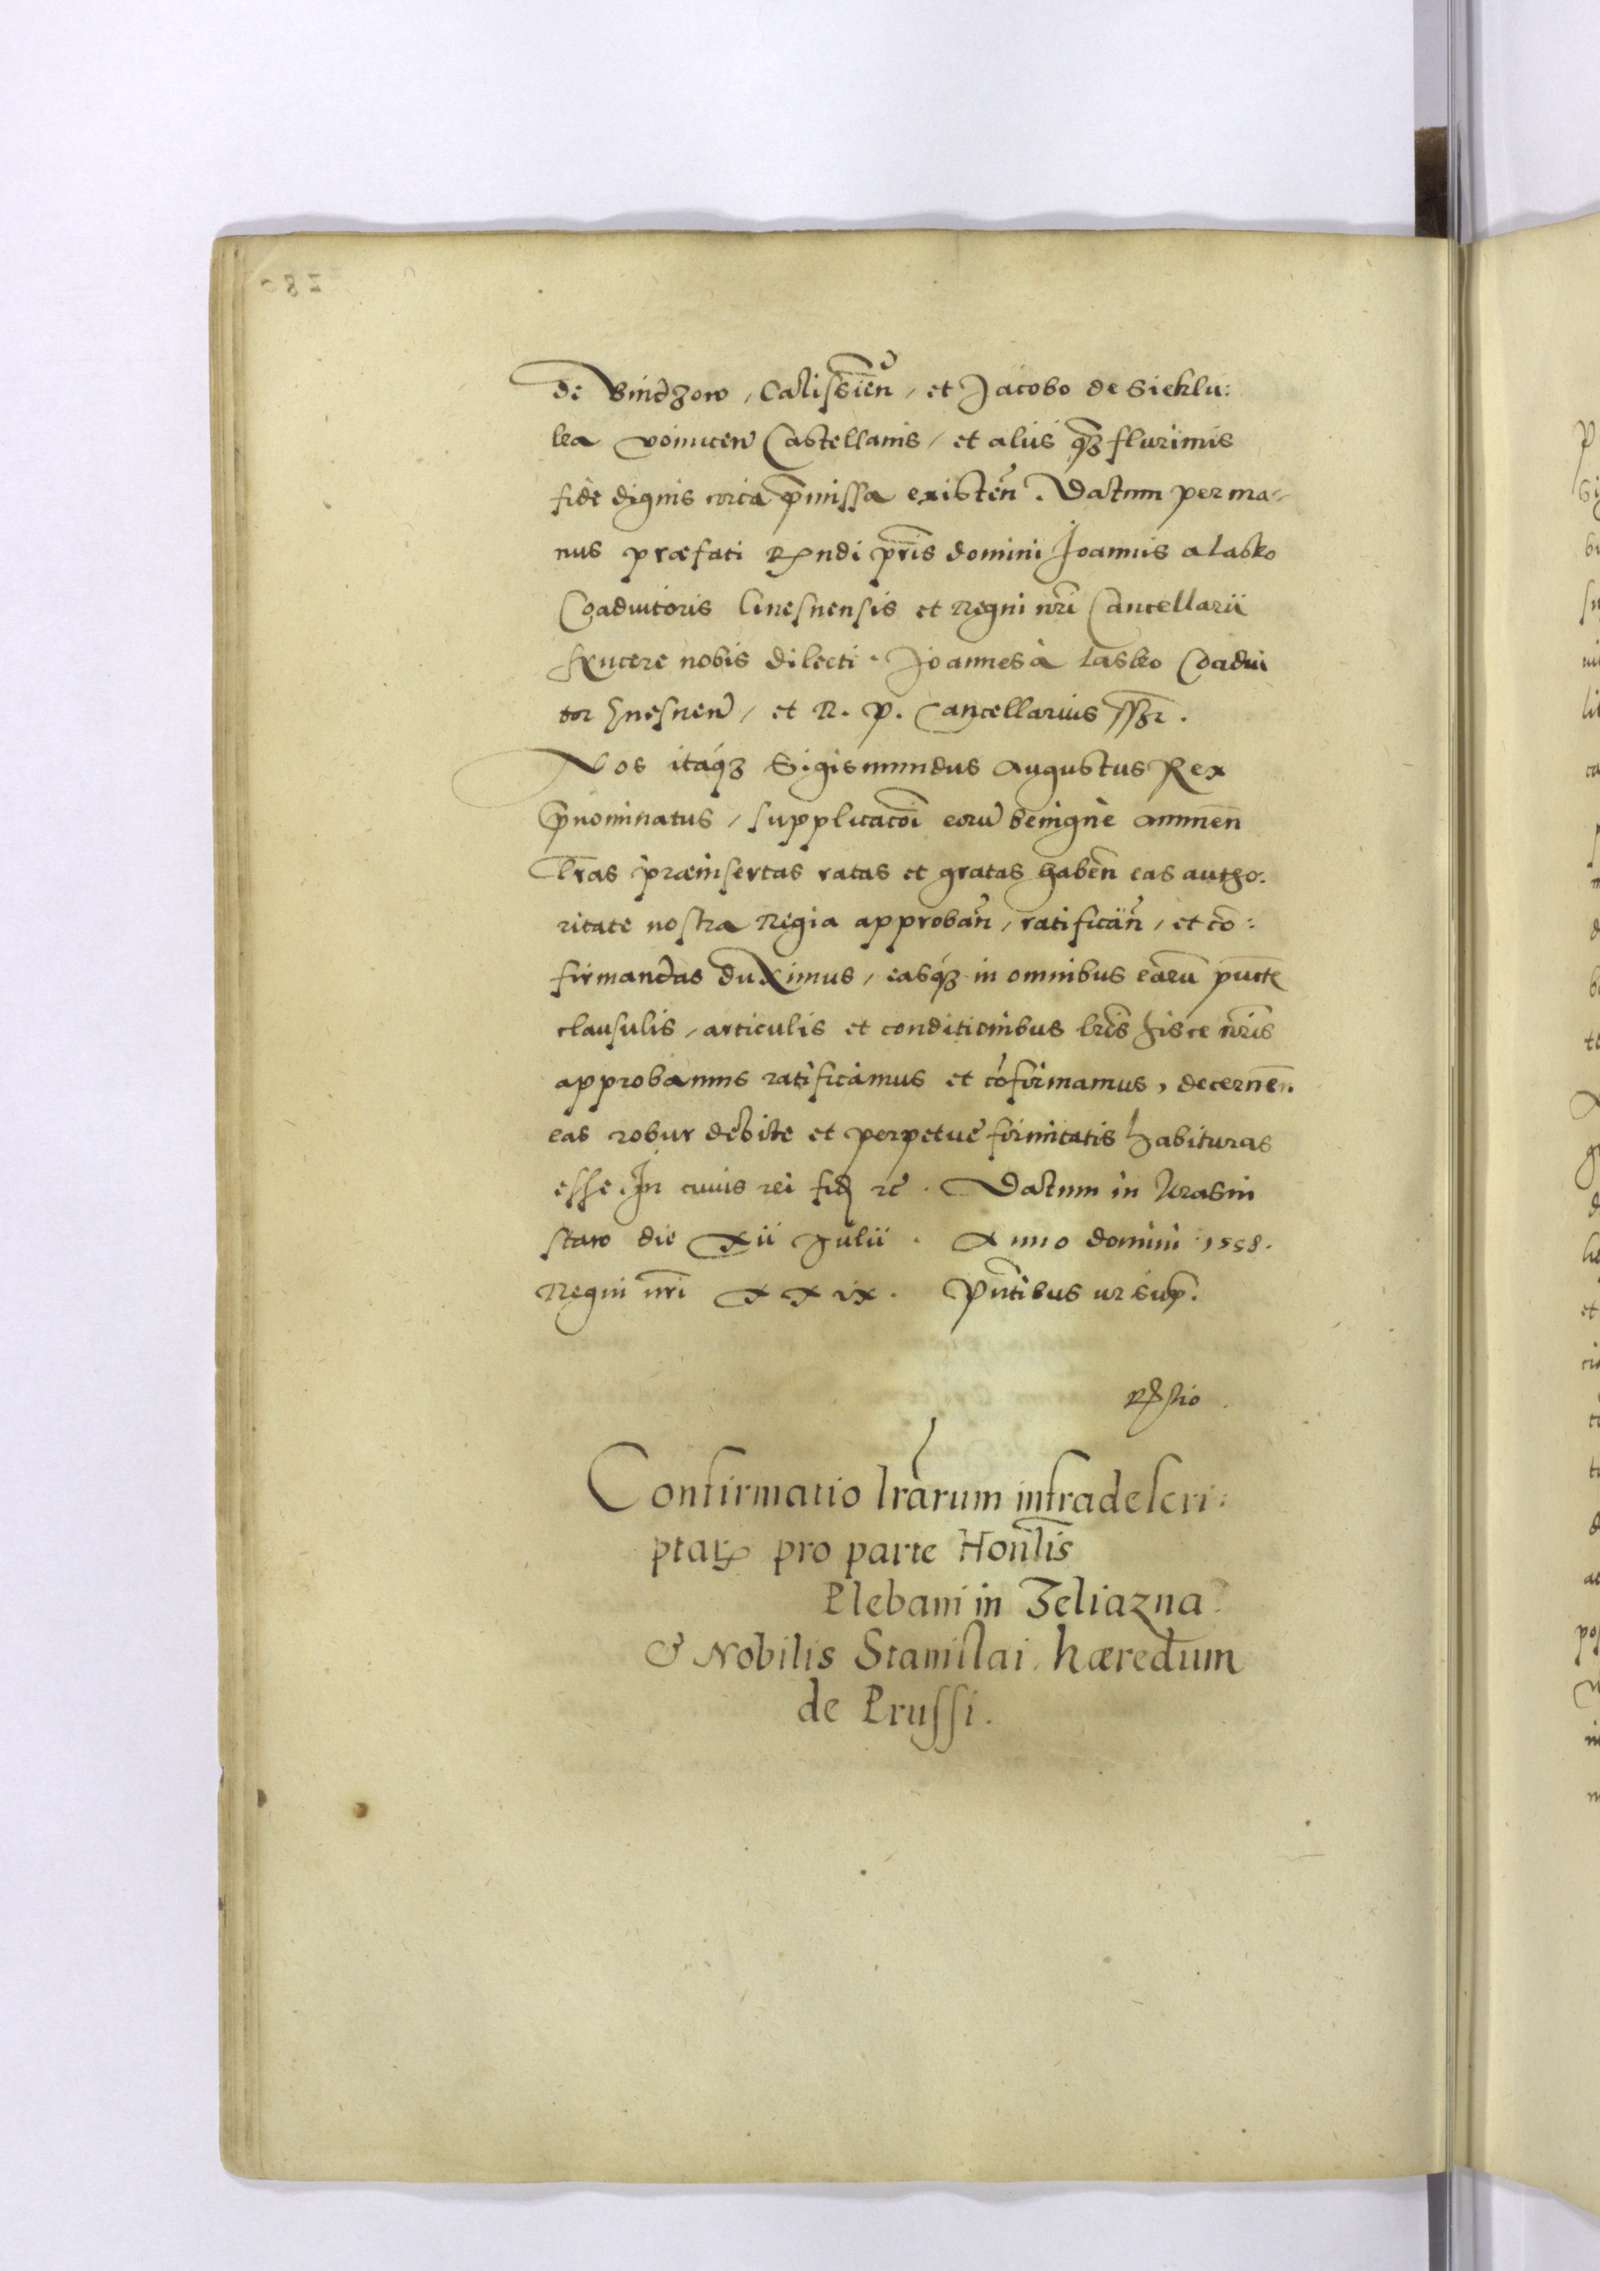 de Bindzow, Calissień, et Jacobo de Sieklu:
ka voinicen̄ Castellanis, et aliis qz plurimis
fide dignis circa p̄missa existeń. Datum per ma-
nus præfati Rndi pr̄is domini Joannis a Lasko
Coadiutoris Gnesnensis et Regni nr̄i Cancellarii
syncere nobis dilecti. Joannes à Lasko Coadiu
tor Gnesnen̄, et R. P. Cancellarius
Nos itaqz Sigismundus Augustus Rex
p̄nominatus, supplicacōi eorū benigne annuen̄
lr̄as præinsertas ratas et gratas haben̄ eas autho.
ritate nostra Regia approbań, ratificań, et co:
firmandas duximus, easqz in omnibus earū punctē
clausulis, articulis et conditionibus lr̄is hisce nr̄is
approbamus ratificamus et cōfirmamus, decernen̄.
eas robur debite et perpetue firmitatis habituras
esse. In cuius rei fid rc̄. Datum in Krasni
staw die Xii Julii. Anno domini 1558.
Regni nr̄i XXix. Pn̄tibus ut sup.
Confirmatio lrarum infradescri:
ptaꝝ pro parte Honl̄is
Plebani in Zeliazna
& Nobilis Stanislai hæredum
de Prussi.
280